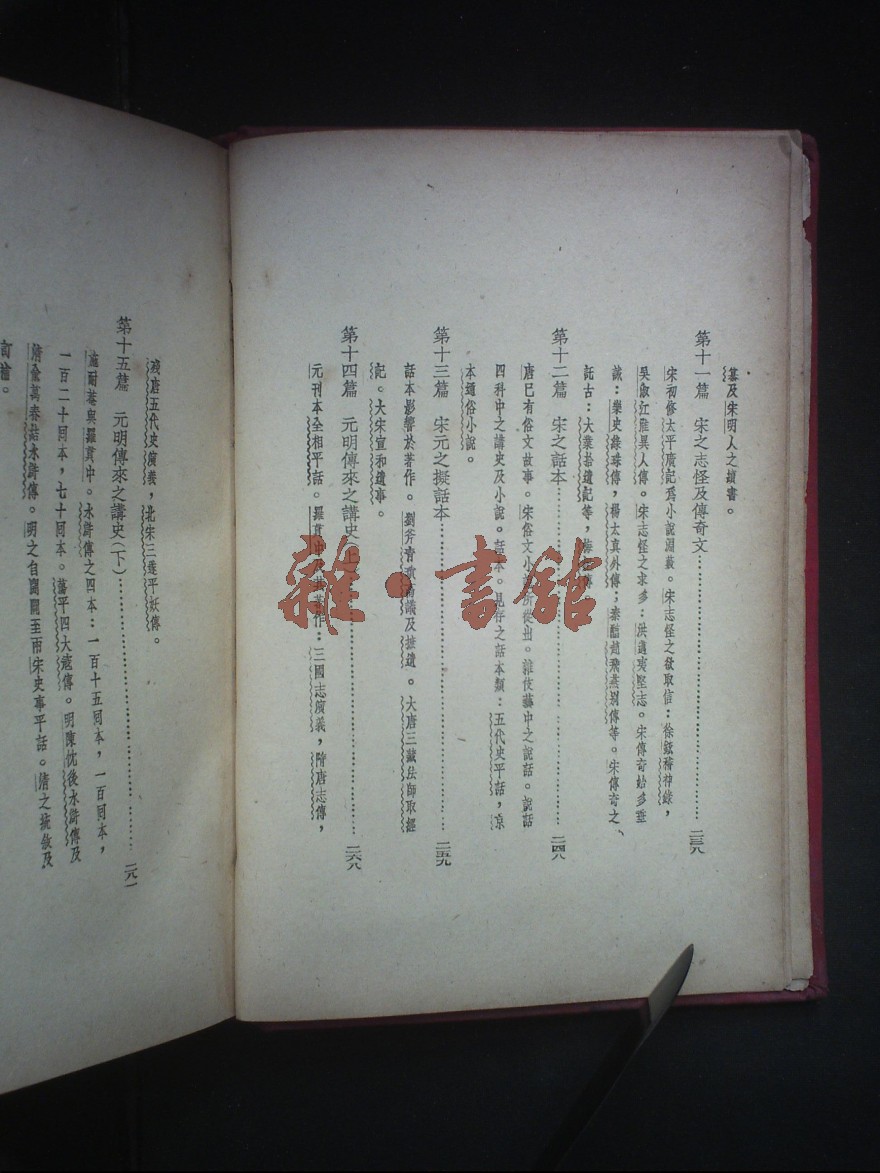 纂及宋明人之續書。
第十一篇　宋之志怪及傳奇文……二三八
宋初修太平廣記爲小說淵藪。宋志怪之欲取信：徐鉉稽神錄，
吳俶江淮異人傳。宋志怪之求多：洪邁夷堅志。宋傳奇始多垂
誡：樂史綠珠傳，楊太眞外傳；秦醇趙飛燕別傳等。宋傳奇之
託古：大業拾遺記等，梅妃傳。
第十二篇　宋之話本……二四八
唐已有俗文故事。宋俗文小說所從出。雜伎藝中之說話。說話
四科中之講史及小說。話本。見存之話本類：五代史平話，京
本通俗小說。
第十三篇　宋元之擬話本……二五九
話本影響於著作。劉斧青瑣高議及摭遺。大唐三藏法師取經
記。大宋宣和遺事。
第十四篇　元明傳來之講史（上）……二六八
元刊本全相平話。羅貫中及其著作：三國志演義，隋唐志傳，
殘唐五代史演義，北宋三遂平妖傳。
第十五篇　元明傳來之講史（下）……二八一
施耐菴與羅貫中。水滸傳之四本：一百十五回本，一百回本，
一百二十回本，七十回本。蕩平四大寇傳。明陳忱後水滸傳及
淸俞萬春結水滸傳。明之自開闢至兩宋史事平話。淸之擬做及
雜·書館